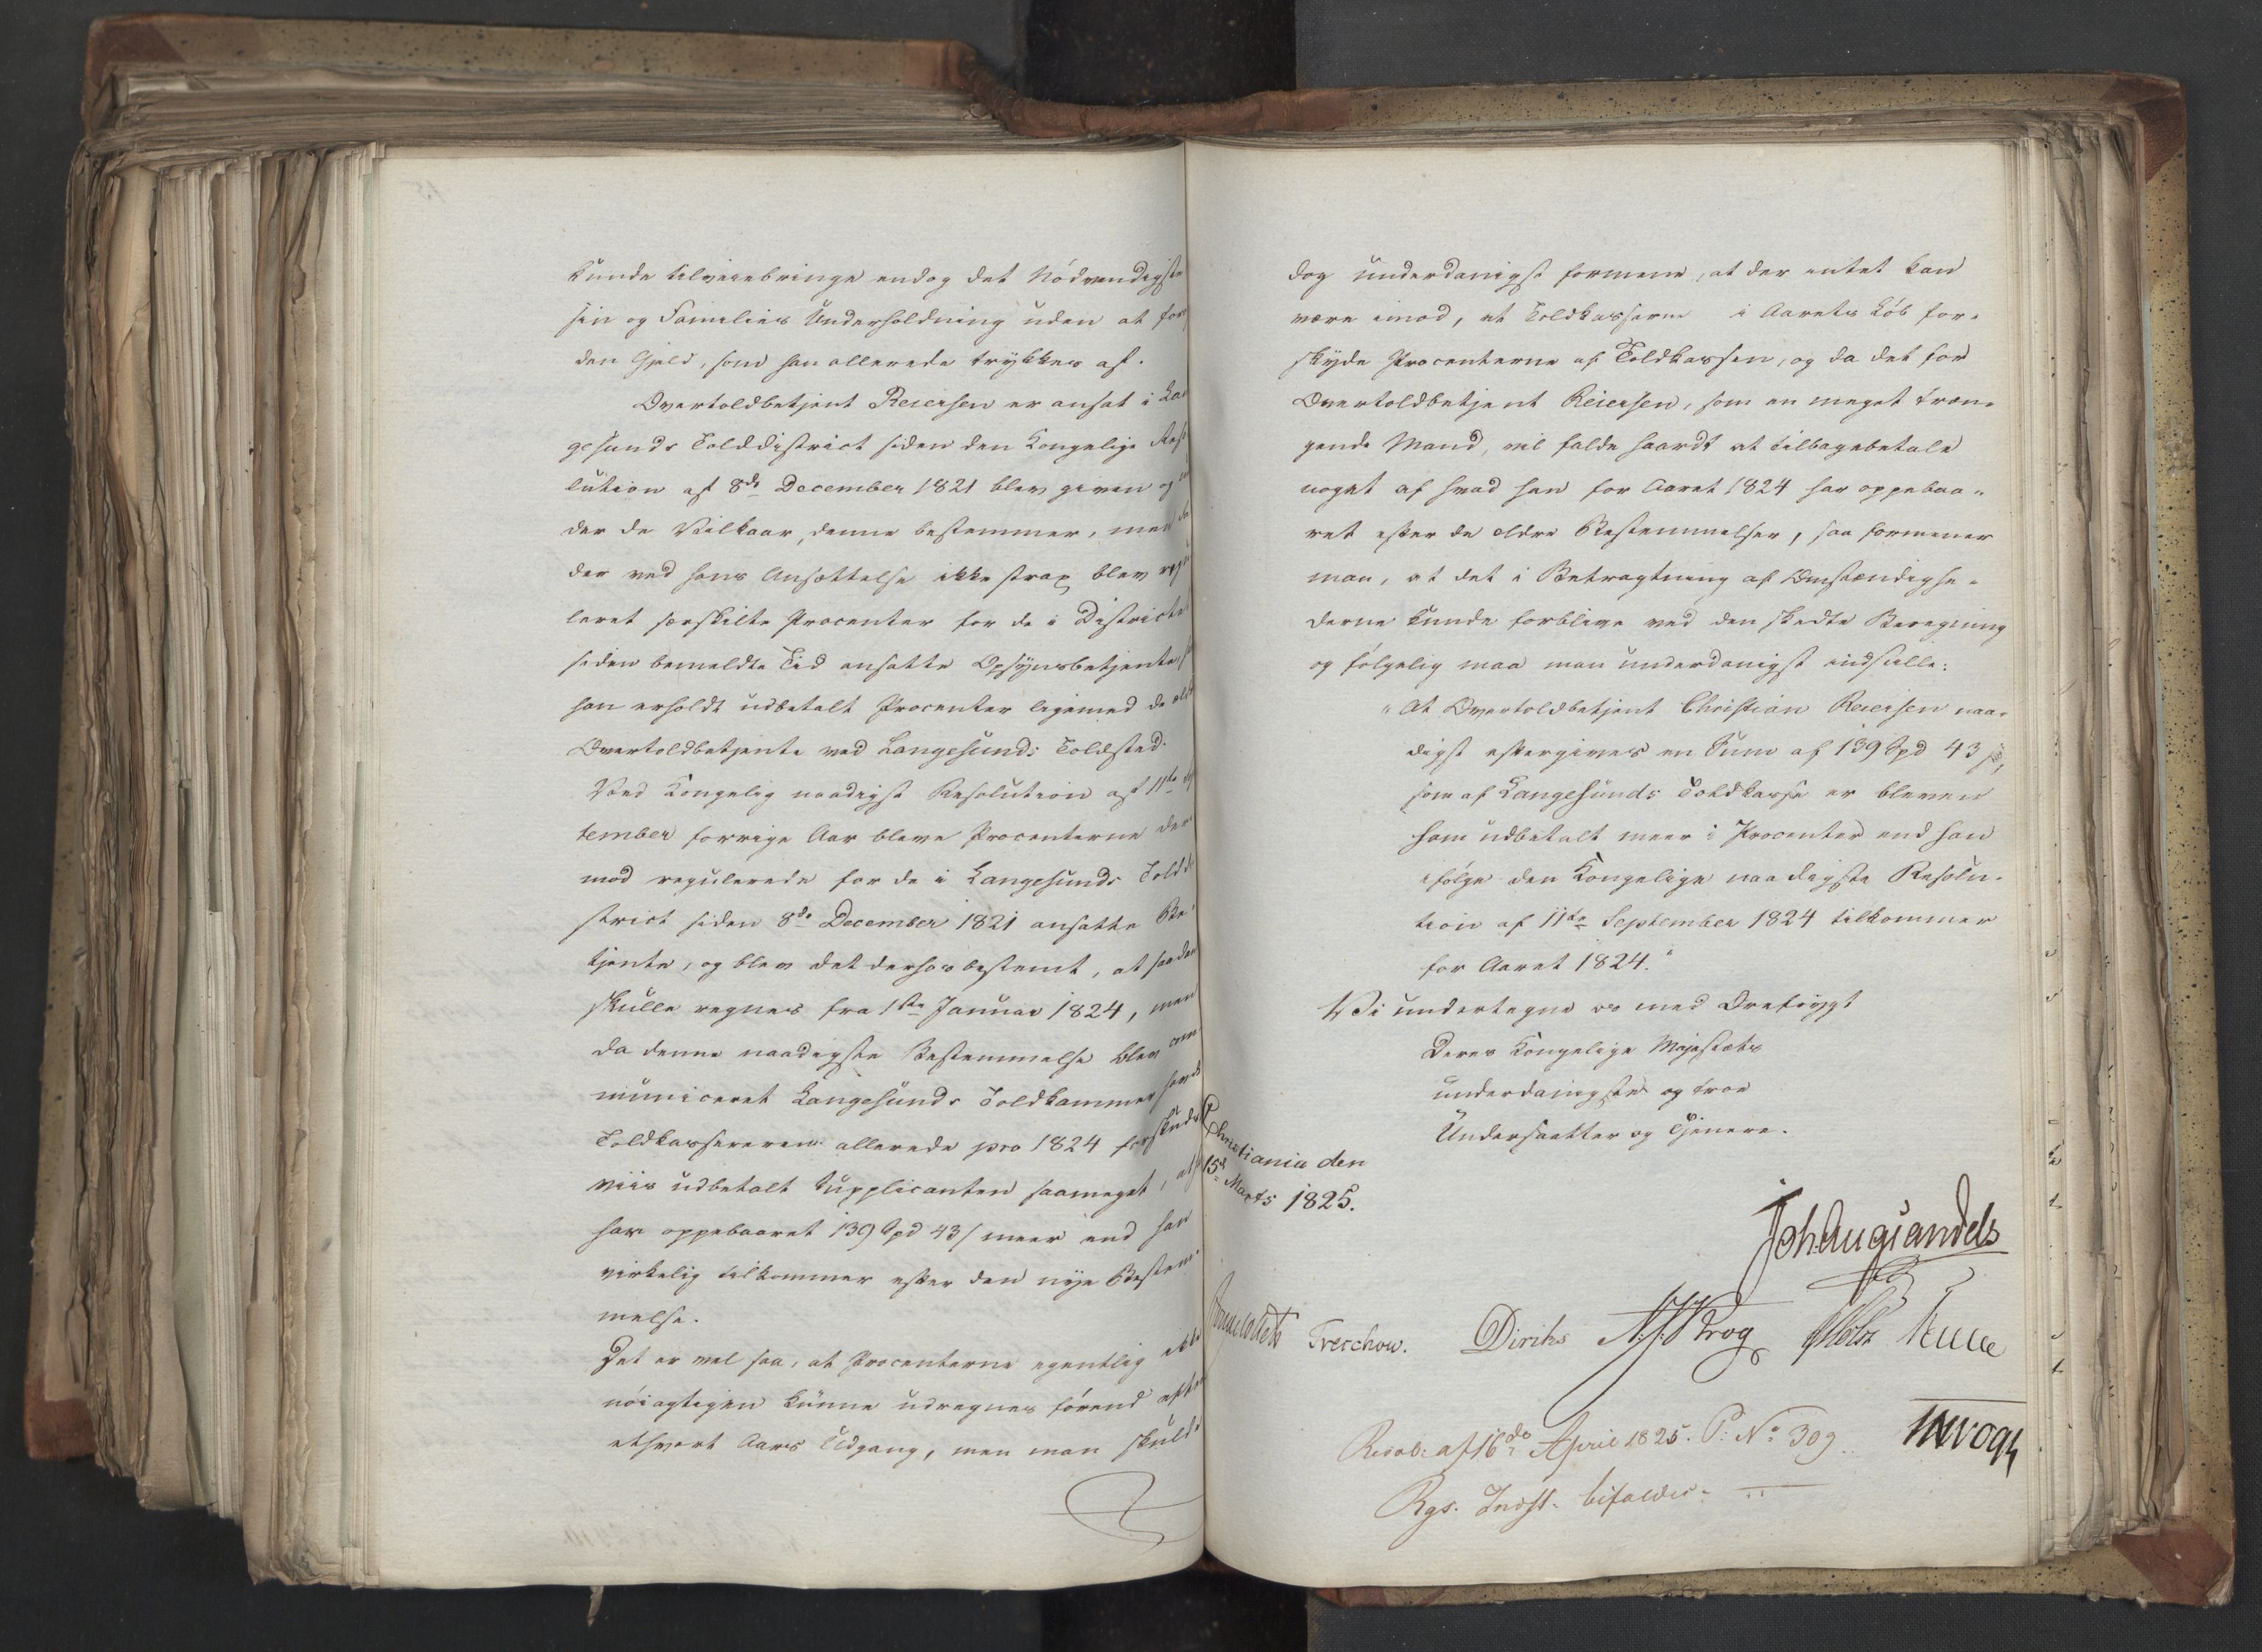 kunde tilveiebringe endog det Nödvendigste
sin og Families Underholdning uden at for
den Gjeld, som han allerede trykkes af.
Overtoldbetjent Reiersen er ansat i Lan
gesunds Tolddistrict siden den Kongelige Reso
lution af 8de December 1821 blev given og un
der de Vilkaar, denne bestemmer, men da
der ved hans Ansættelse ikke strax blev regu
leret særskilte Procenter for de i Districtet
siden bemeldte Tid ansatte Opsynsbetjente,
han erholdt udbetalt Procenter ligemed de æld
Overtoldbetjente ved Langesunds Toldsted.
Ved Kongelig naadigst Resolution af 11te Sep
tember forrige Aar bleve Procenterne der
mod regulerede for de i Langesunds Toldi
strict siden 8de December 1821 ansatte Be-
tjente, og blev det derhos bestemt, at saadan
skulle regnes fra 1ste Januar 1824, men
da denne naadigste Bestemmelse blev com
municeret Langesunds Toldkammer, havde
Toldkassereren allerede pro 1824 forskuds
viis udbetalt Supplicanten saameget, at
har oppebaaret 139 Spd 43 s meer end han
virkelig tilkommer efter den nye Bestem-
melse.
Det er vel saa, at Procenterne egentlig ikke
nöiagtigen kunne udregnes förend efter
ethvert Aars Udgang, men man skulde
dog underdanigst formene, at der intet kan
være imod, at Toldkassererne i Aarets Löb for-
skyde Procenterne af Toldkassen, og da det for
Overtoldbetjent Reiersen, som en meget træn-
gende Mand, vil falde haardt at tilbagebetale
noget af hvad han for Aaret 1824 har oppebaa-
ret efter de ældre Bestemmelser, saa formener
man, at det i Betragtning af Omstændighe-
derne kunde forblive ved den skedte Beregning
og fölgelig maa man underdanigst indstille:
"At Overtoldbetjent Christian Reiersen naa-
digst eftergives en Sum af 139 Spd 43 s,
som af Langesunds Toldkasse er bleven
ham udbetalt meer i Procenter end han
ifölge den Kongelige naadigste Resolu-
tion af 11te September 1824 tilkommer
for Aaret 1824."
Vi undertegne os med Ærefrygt
Deres Kongelige Majestæts
underdanigste og troe
Undersaatter og Tjenere.
Christiania den
15de Marts 1825.
Joh Aug Sandels
Sommerhielm Treschow. Diriks A. J. Krog J Holst Fasting
Resol: af 16de April 1825. P: No 309.
JHVogt
Rgs. Indst. bifaldes.